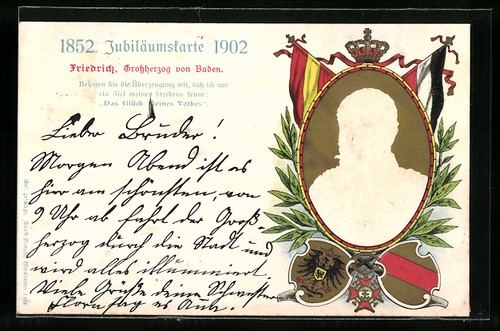 1852 Jubiläumskarte 1902
Friedrich, Großherzog von Baden.
Nehmen Sie die Überzeugung mit, daß ich nur
ein Ziel meines Strebens kenne:
„Das Glück meines Volkes“.
Lieber Bruder!
Morgen Abend ist es
hier am schönsten, von
9 Uhr ab fährt der Groß-
herzog durch die Stadt und
wird alles illuminiert.
Viele Grüße deine Schwester